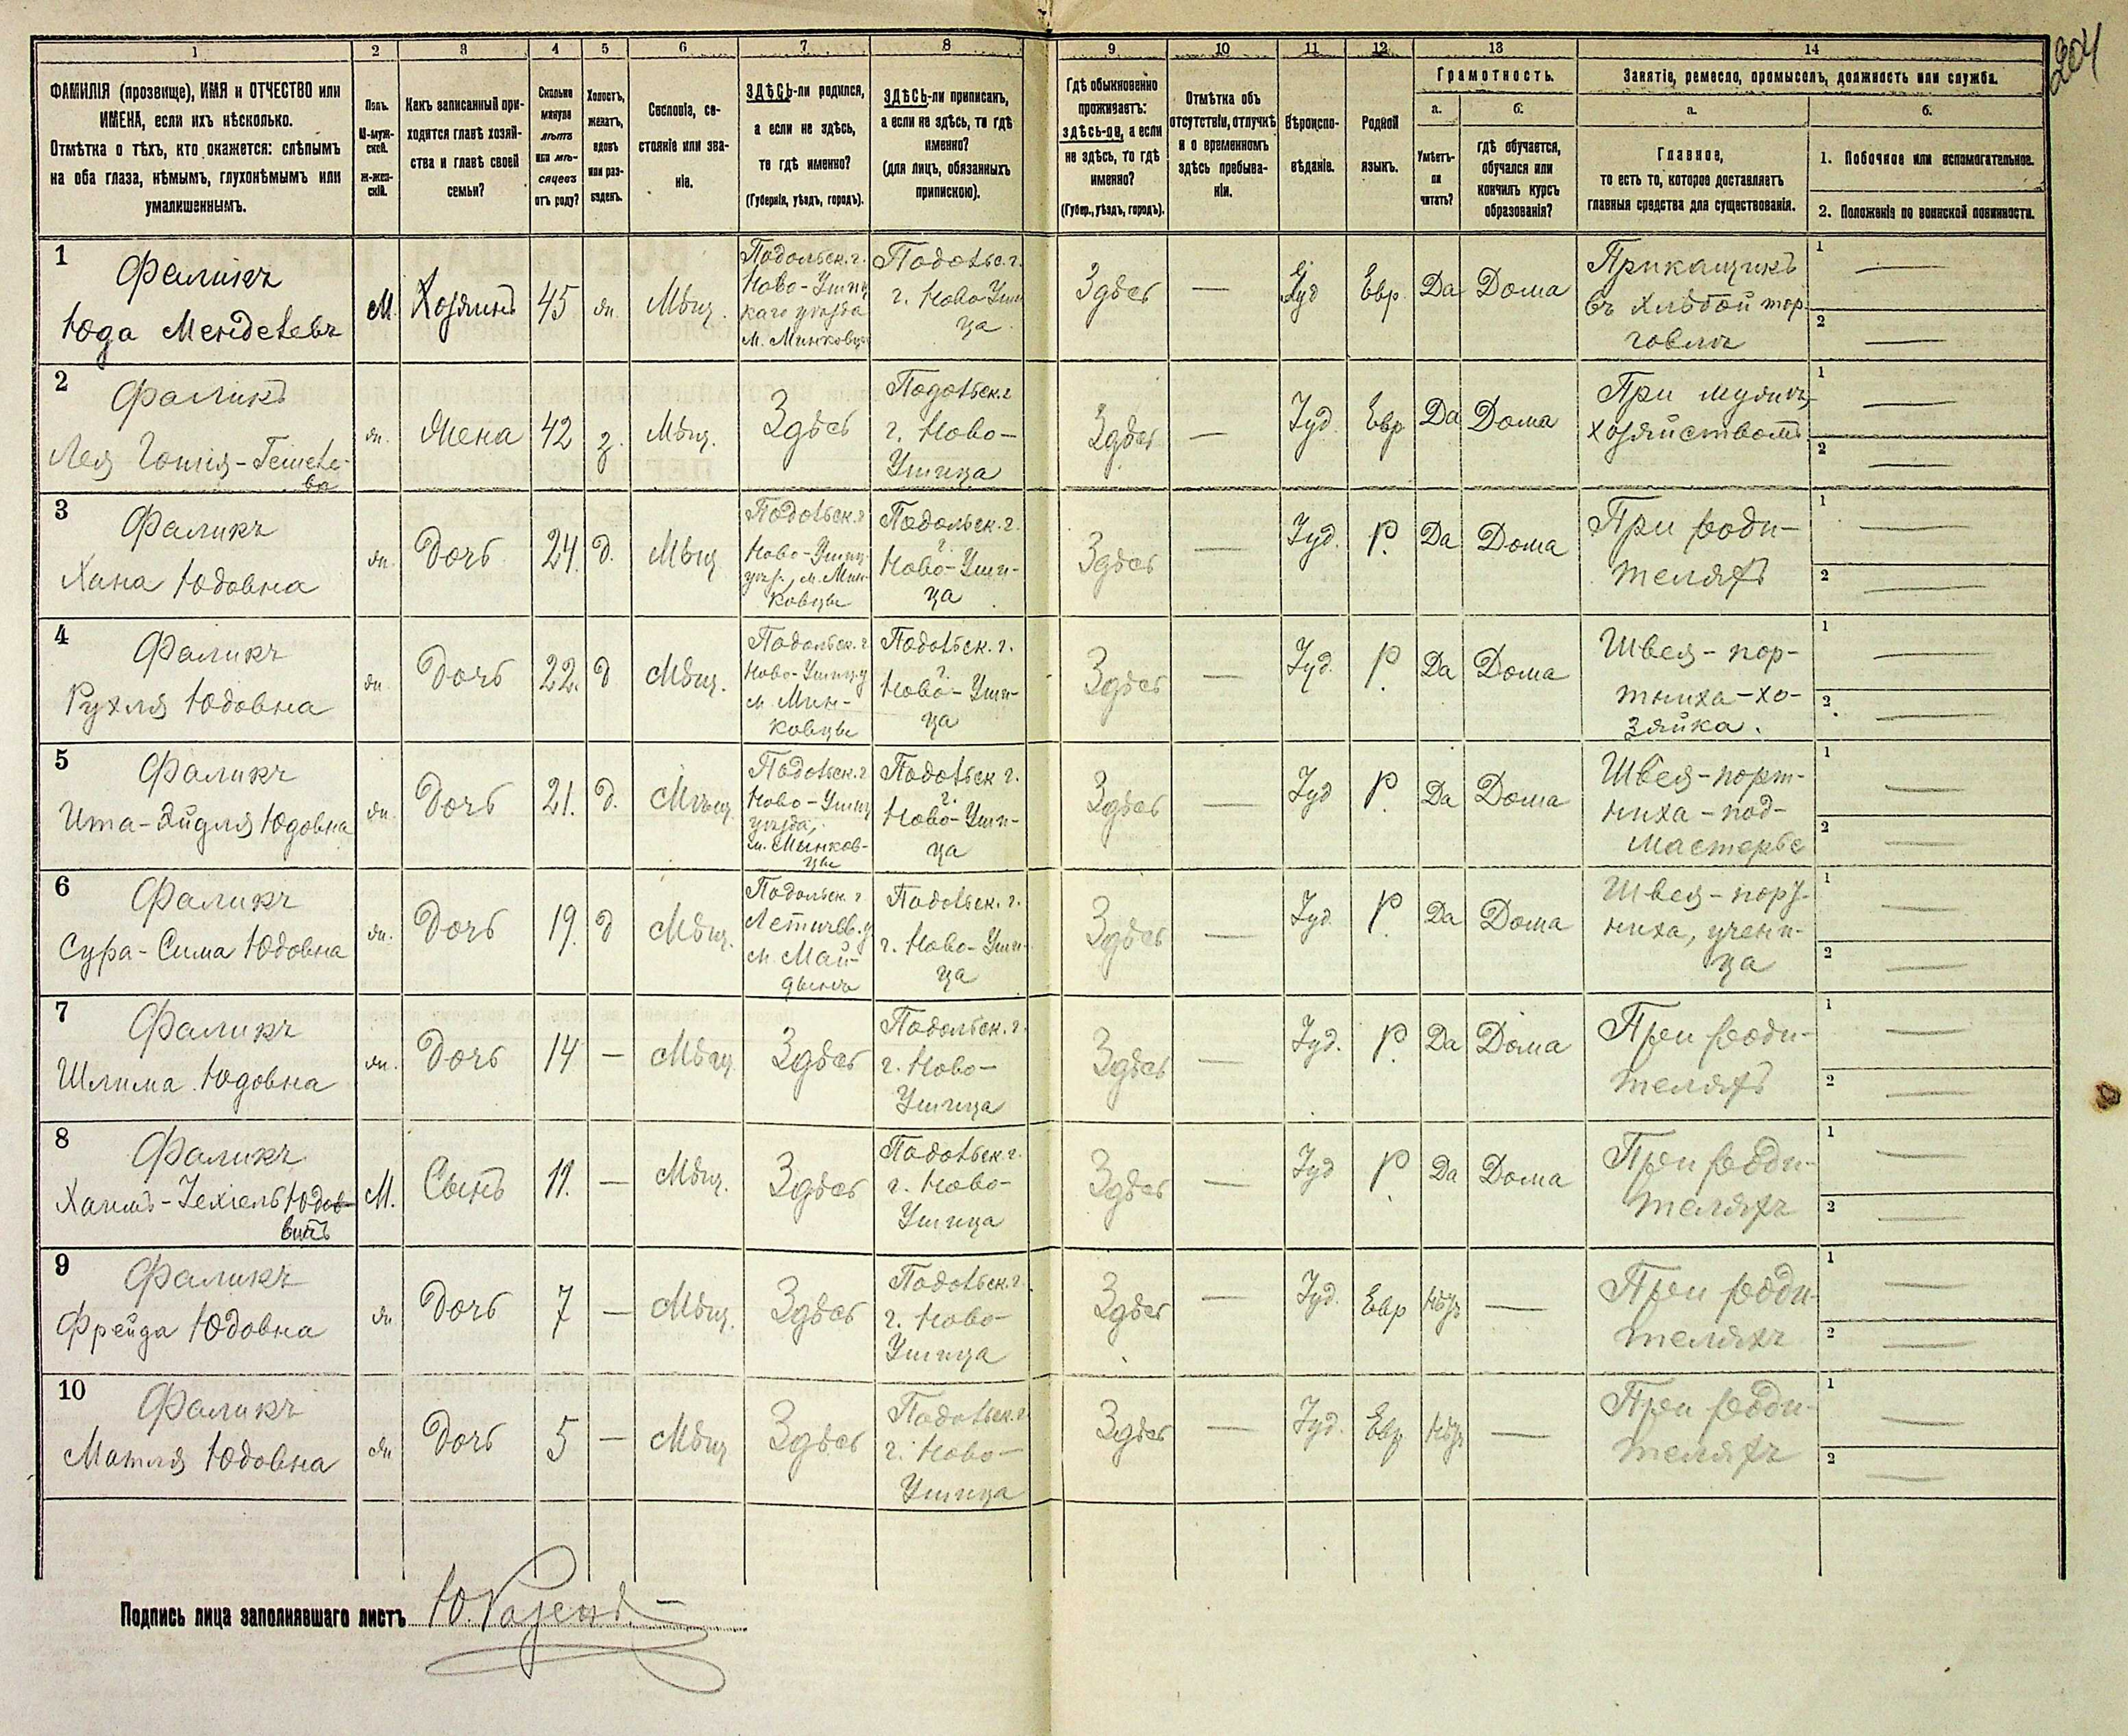 204
1 2 3 4 5 6 7 8 9 10 11 12 13 14
ФАМИЛІЯ (прозвище), ИМЯ и ОТЧЕСТВО или
ИМЕНА, если ихъ нѣсколько.
Отмѣтка о тѣхъ, кто окажется: слѣпымъ
на оба глаза, нѣмымъ, глухонѣмымъ или
умалишеннымъ.
Полъ.
М-муж-
ской.
Ж-жен-
скій.
Какъ записанный при-
ходится главѣ хозяй-
ства и главѣ своей
семьи?
Сколько
минуло
лѣтъ
или мѣ-
сяцевъ
отъ роду?
Холостъ,
женатъ,
вдовъ
или раз-
веденъ.
Сословіе, со-
стояніе или зва-
ніе.
ЗДѢСЬ-ли родился,
а если не здѣсь,
то гдѣ именно?
(Губернія, уѣздъ, городъ).
ЗДѢСЬ-ли приписанъ,
а если не здѣсь, то гдѣ
именно?
(для лицъ, обязанныхъ
припискою).
Гдѣ обыкновенно
проживаетъ:
здѣсь-ли, а если
не здѣсь, то гдѣ
именно?
(Губер., уѣздъ, городъ).
Отмѣтка объ
отсутствіи, отлучкѣ
и о временномъ
здѣсь пребыва-
ніи.
Вѣроиспо-
вѣданіе.
Родной
языкъ.
Грамотность.
а.
Умѣетъ-
ли
читать?
б.
гдѣ обучается,
обучался или
кончилъ курсъ
образованія?
Занятіе, ремесло, промыселъ, должность или служба.
а.
Главное,
то есть то, которое доставляетъ
главныя средства для существованія.
б.
1. Побочное или вспомогательное.
2. Положеніе по воинской повинности.
1
Фаликъ
Юда Менделевъ
М.
Хозяинъ
45
ж.
Мѣщ.
Подольск. г.
Ново-Ушиц
каго уѣзда
м. Миньковцы
Подольс. г.
г. Ново Уши
ца
Здѣсь
—
Іуд
Евр.
Да
Дома
Прикащикъ
въ хлѣбой тор-
говлѣ
1 —
2 —
2
Фаликъ
Лея Готля-
ва
ж.
Жена
42
з.
Мѣщ.
Здѣсь
Подольск. г
г. Ново-
Ушица
Здѣсь
—
Іуд.
Евр
Да
Дома
При мужѣ,
хозяйствомъ
1 —
2 —
3
Фаликъ
Хана Юдовна
ж.
Дочь
24.
д.
Мѣщ
Подольск. г
Ново-Ушиц.
уѣз., м. Мин-
ковцы
Подольск. г.
г.
Ново-Уши-
ца
Здѣсь
—
Іуд.
Р.
Да
Дома
При роди-
теляхъ
1 —
2 —
4
Фаликъ
Рухля Юдовна
ж.
Дочь
22.
д
Мѣщ.
Подольск. г
Ново-Ушиц. у
м. Мин-
ковцы
Подольск. г.
г.
Ново-Уши-
ца
Здѣсь
—
Іуд.
Р.
Да
Дома
Швея-пор-
тниха-хо-
зяйка.
1 —
2 —
5
Фаликъ
Ита-Эйдля Юдовна
ж.
Дочь
21.
д.
Мѣщ
Подольск. г
Ново-Ушиц
уѣзда,
м. Минков-
цы
Подольск г.
г.
Ново-Уши-
ца
Здѣсь
—
Іуд
Р.
Да
Дома
Швея-порт-
ниха-под-
мастерье
1 —
2 —
6
Фаликъ
Сура-Сима Юдовна
ж.
Дочь
19.
д
Мѣщ.
Подольск. г
Летичев. у
м. Май-
данъ
Подольск. г.
г. Ново-Уши-
ца
Здѣсь
—
Іуд.
Р.
Да
Дома
Швея-порт-
ниха, учени-
ца
1 —
2 —
7
Фаликъ
Шлима Юдовна
ж.
Дочь
14
—
Мѣщ
Здѣсь
Подольск. г.
г. Ново-
Ушица
Здѣсь
—
Іуд.
Р.
Да
Дома
При роди-
теляхъ
1 —
2 —
8
Фаликъ
Хаимъ-Іехіель Юдо-
вичъ
М.
Сынъ
11.
—
Мѣщ.
Здѣсь
Подольск г.
г. Ново-
Ушица
Здѣсь
—
Іуд
Р.
Да
Дома
При роди-
теляхъ
1 —
2 —
9
Фаликъ
Фрейда Юдовна
ж
Дочь
7
—
Мѣщ.
Здѣсь
Подольск. г.
г. Ново-
Ушица
Здѣсь
—
Іуд.
Евр
Нѣтъ
—
При роди-
теляхъ
1 —
2 —
10
Фаликъ
Матля Юдовна
ж
Дочь
5
—
Мѣщ
Здѣсь
Подольск. г
г. Ново-
Ушица
Здѣсь
—
Іуд.
Евр
Нѣтъ
—
При роди-
теляхъ
1 —
2 —
Подпись лица заполнявшаго листъ Ю.